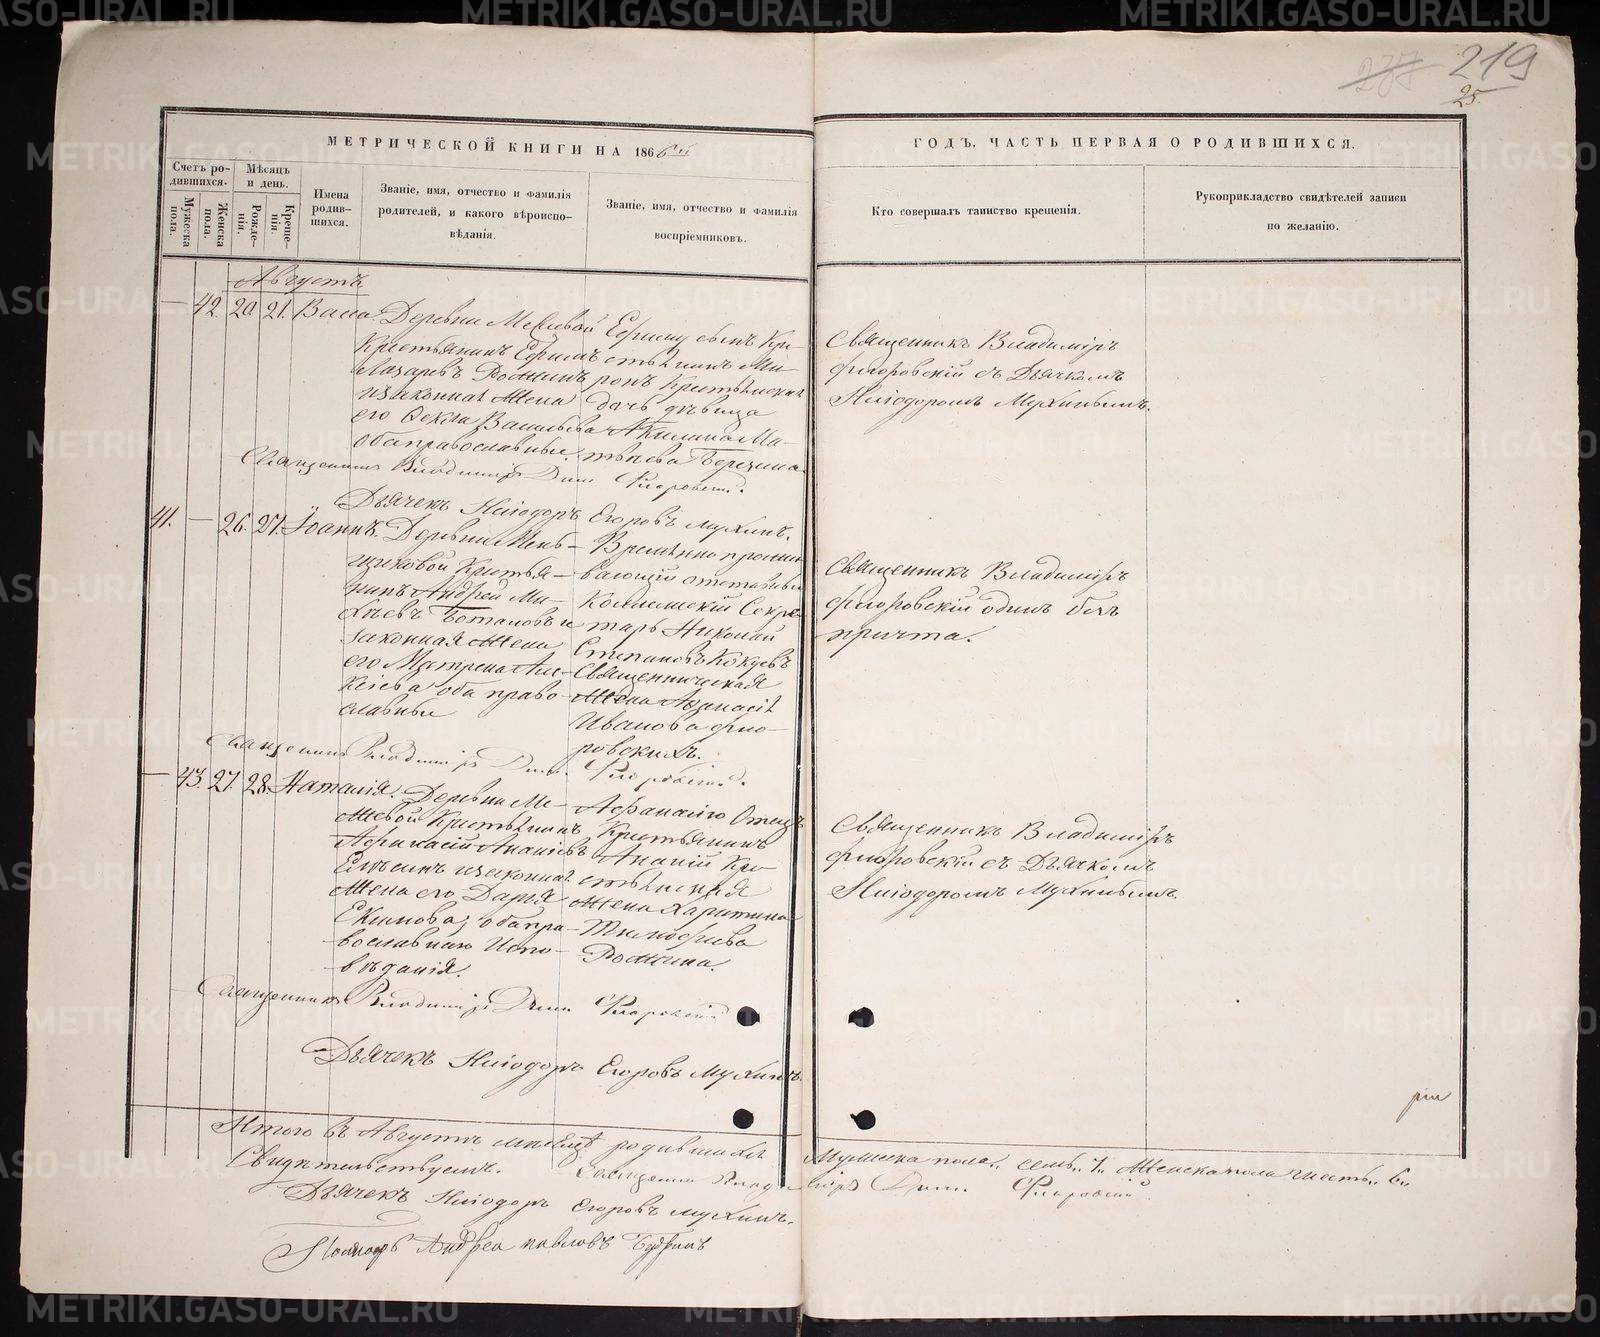 219
25.
МЕТРИЧЕСКОЙ КНИГИ НА 1866й
ГОДЪ, ЧАСТЬ ПЕРВАЯ О РОДИВШИХСЯ.
Счетъ ро-
дившихся.
Мужеска пола.
Женска пола.
Мѣсяцъ
и день.
Рожде-
нія.
Креще-
нія.
Имена
родив-
шихся.
Званіе, имя, отчество и фамилія
родителей, и какого вѣроиспо-
вѣданія.
Званіе, имя, отчество и фамилія
воспріемниковъ.
Кто совершалъ таинство крещенія.
Рукоприкладство свидѣтелей записи
по желанію.
Августъ
— 42. 20. 21. Васса
Деревни
Крестьянинъ Ефимъ
Лазаревъ
и законная жена
его Ѳекла Васильева
оба православные.
Ефиму сынъ Кре-
стьянинъ Ми-
ронъ Крестьянская
дочь дѣвица
Акилина Ма-
тѣева Березина.
Священникъ Владиміръ
Флоровскій съ Дьячкомъ
Ниіодоромъ Мухинымъ.
Священникъ Владиміръ Дим. Флоровскій.
Дьячекъ Ниіодоръ Егоровъ Мухинъ.
41. — 26. 27. Іоаннъ.
Деревни Мень-
щиковой Крестья-
нинъ Андрей Ми-
хѣевъ Боталовъ и
законная жена
его Матрена Али-
кіева оба право-
славные
Временно прожи-
вающій отставный
Коллежскій Секре-
тарь Николай
Степановъ
Священническая
жена Аѳанасія
Иванова Фло-
ровскихъ.
Священникъ Владиміръ
Флоровскій одинъ безъ
причта.
Священникъ Владиміръ Дим. Флоровскій.
— 43. 27. 28. Наталія.
Деревни Ме-
жевой Крестьянинъ
Афанасій Ананіевъ
и законная
жена его Дарья
Екимова, оба пра-
вославнаго Испо-
вѣданія.
Афанасію Отецъ
Крестьянинъ
Ананій Кре-
стьянская
жена Харитина
Тимофѣева
Священникъ Владиміръ
Флоровскій съ Дьячкомъ
Ниіодоромъ Мухинымъ.
Священникъ Владиміръ Дим. Флоровскій
Дьячекъ Ниіодоръ Егоровъ Мухинъ.
Итого въ Августѣ мѣсяцѣ родившихся Мужеска пола „семь„ 7„ Женска пола шесть„ 6„
Свидѣтельствуемъ. Священникъ Владиміръ Дим. Флоровскій.
Дьячекъ Ниіодоръ Егоровъ Мухинъ.
Пономарь Андрей Павловъ Будринъ
METRIKI.GASO-URAL.RU